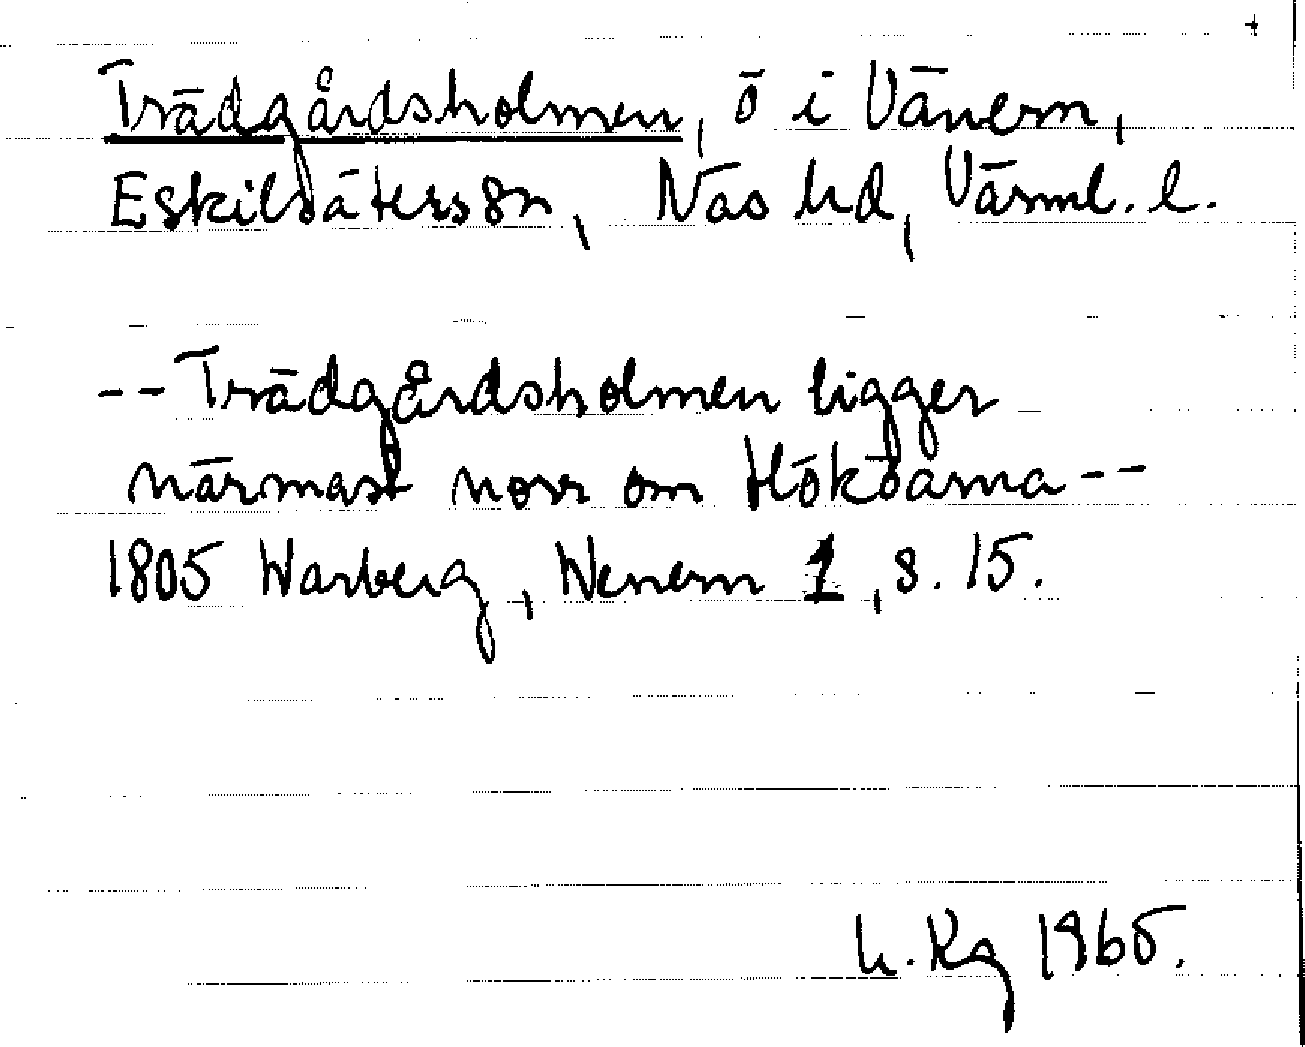 Trädgårdsholmen, ö i Vänern,
Eskilsäters sn, Näs hd, Värml. l.
-- Trädgårdsholmen ligger
närmast norr om Hököarna --
1805 Warberg, Wenern 1, s. 15.
h. Kg 1965.